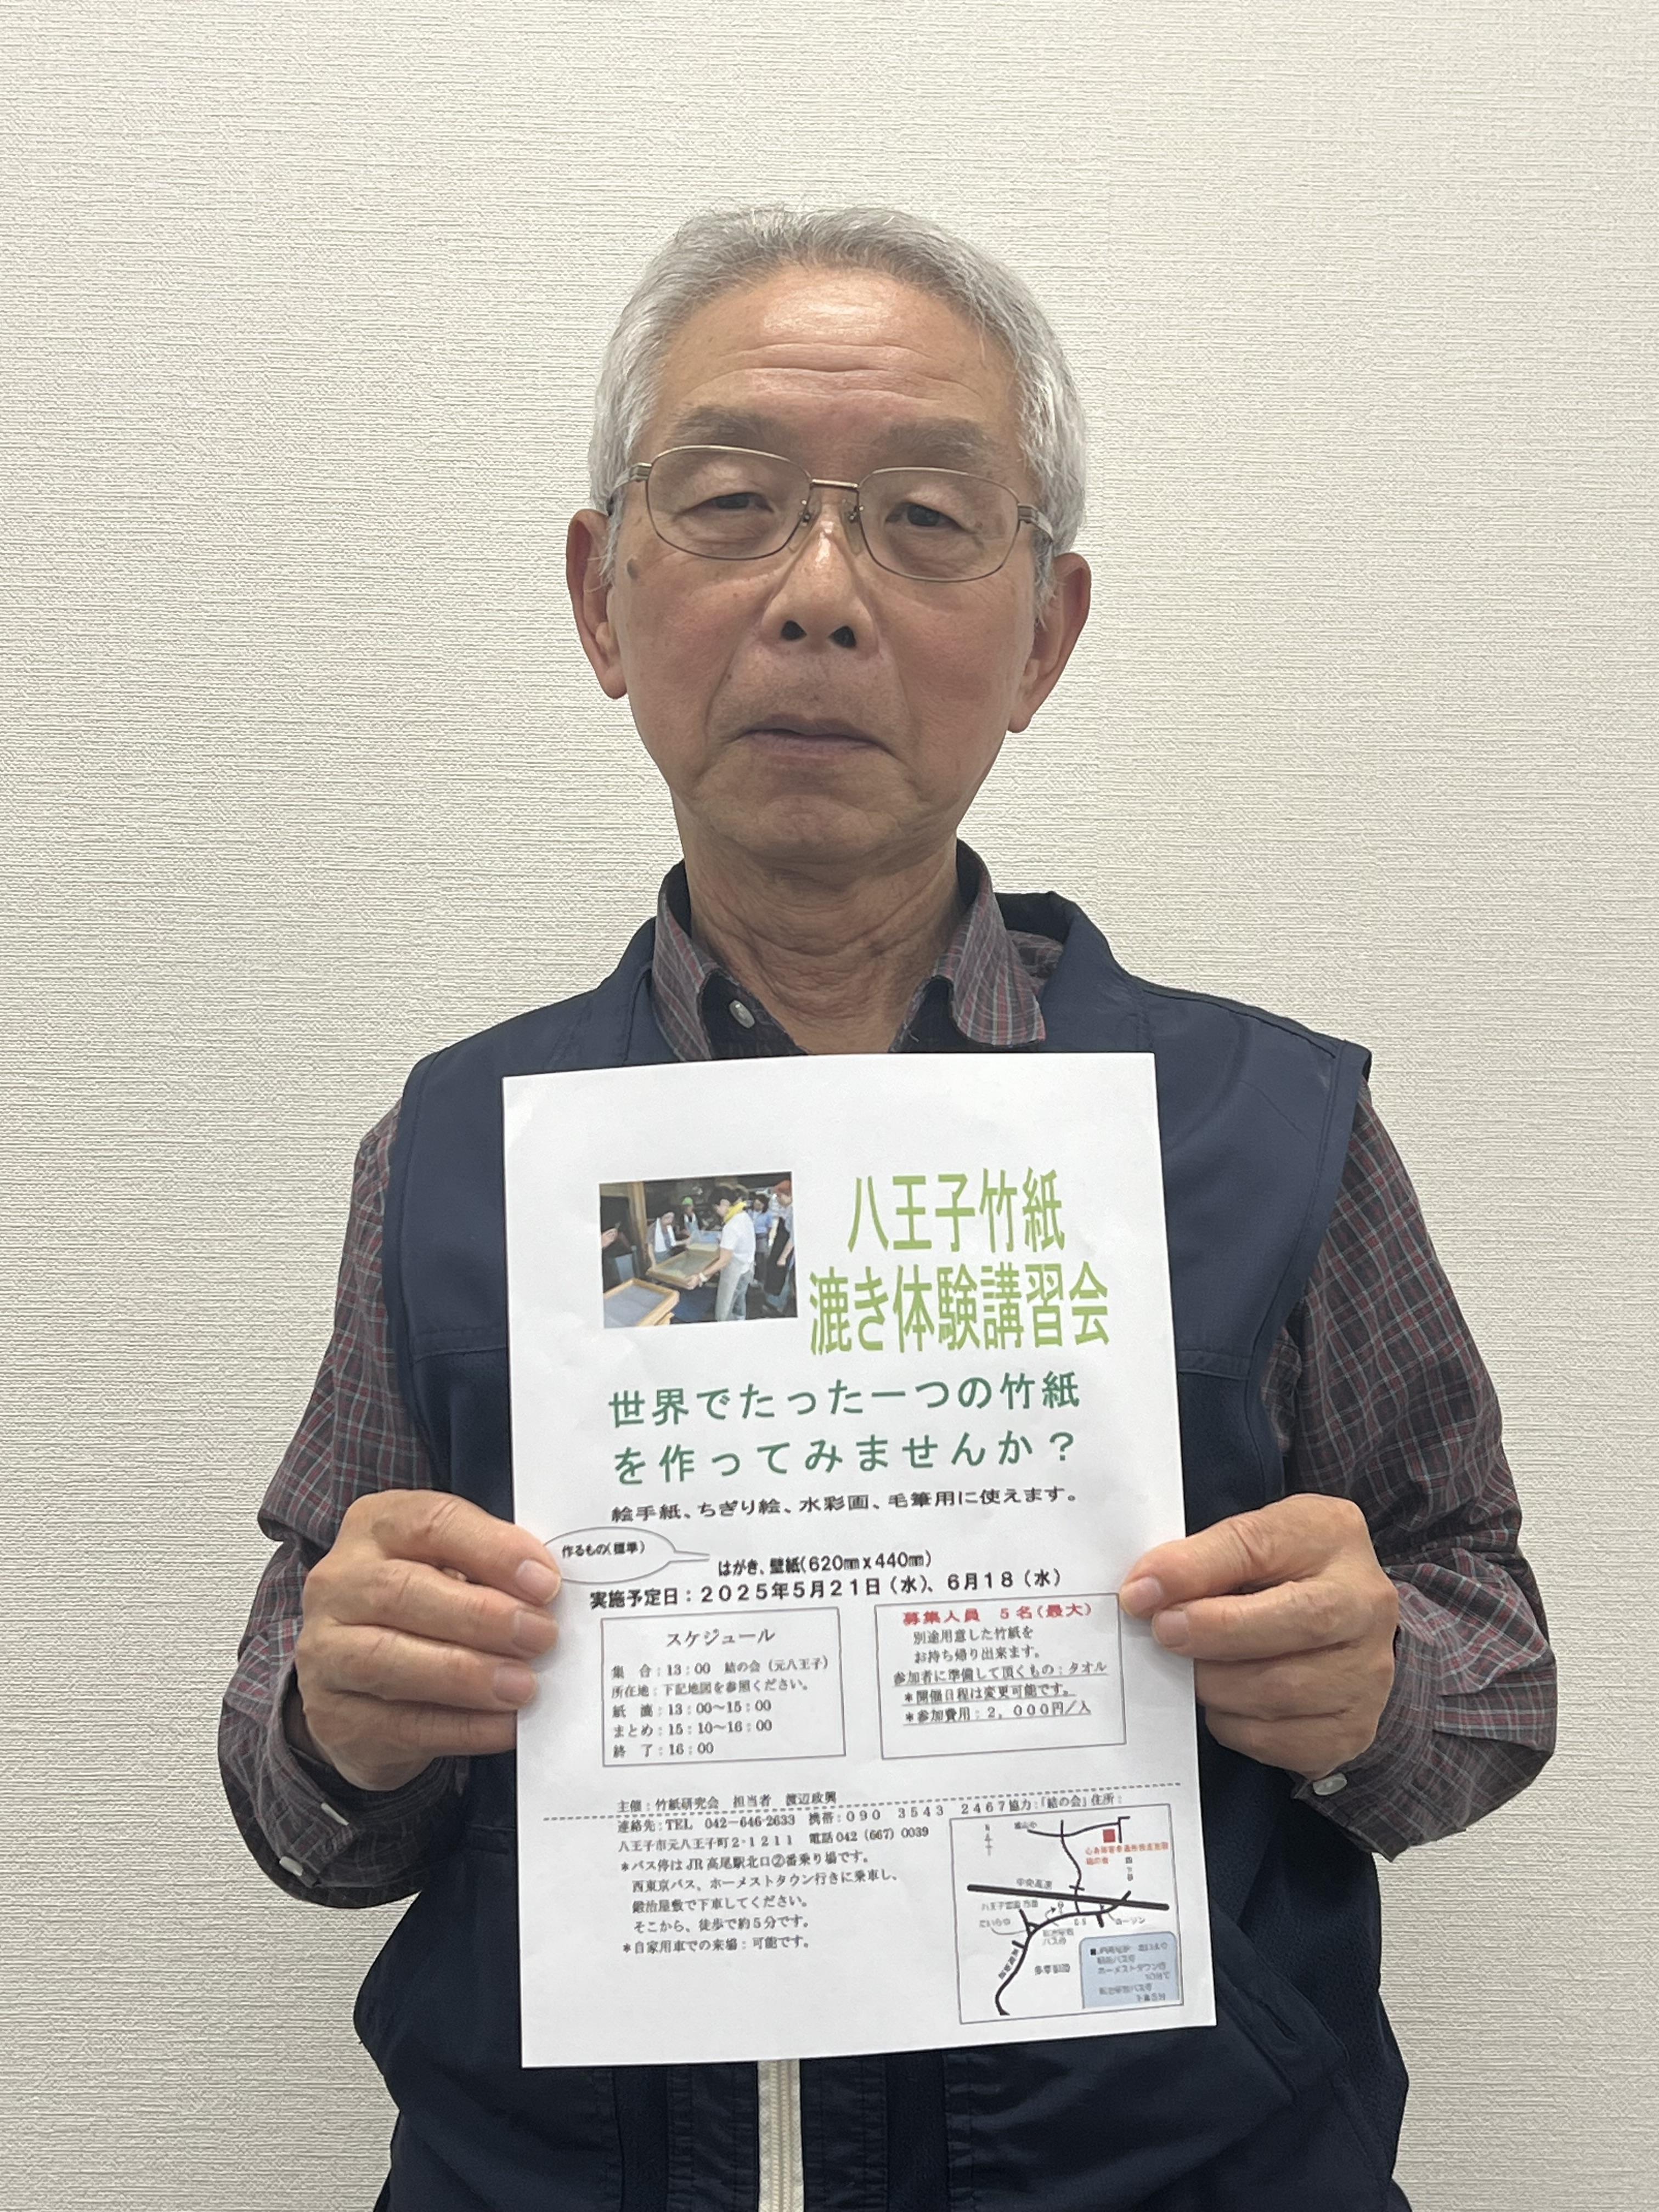 八王子竹紙
漉き体験講習会
世界でたった一つの竹紙
を作ってみませんか？
絵手紙、ちぎり絵、水彩画、毛筆用に使えます。
作るもの(標準)
はがき、壁紙(620㎜ｘ440㎜)
実施予定日：２０２５年５月２１日（水）、６月１８（水）
スケジュール
集　合：13：00　結の会（元八王子）
所在地：下記地図を参照ください。
紙　漉：13：00～15：00
まとめ：15：10～16：00
終　了：16：00
募集人員　５名（最大）
別途用意した竹紙を
お持ち帰り出来ます。
参加者に準備して頂くもの：タオル
＊開催日程は変更可能です。
＊参加費用：２，０００円／人
主催：竹紙研究会　担当者　渡辺政興
連絡先：TEL　042－646-2633　携帯：０９０　３５４３　２４６７協力：「結の会」住所：
八王子市元八王子町２-１２１１　電話042（667）0039
＊バス停はJR高尾駅北口②番乗り場です。
西東京バス、ホーメストタウン行きに乗車し、
鍛冶屋敷で下車してください。
そこから、徒歩で約５分です。
＊自家用車での来場：可能です。
中央高速
ローソン